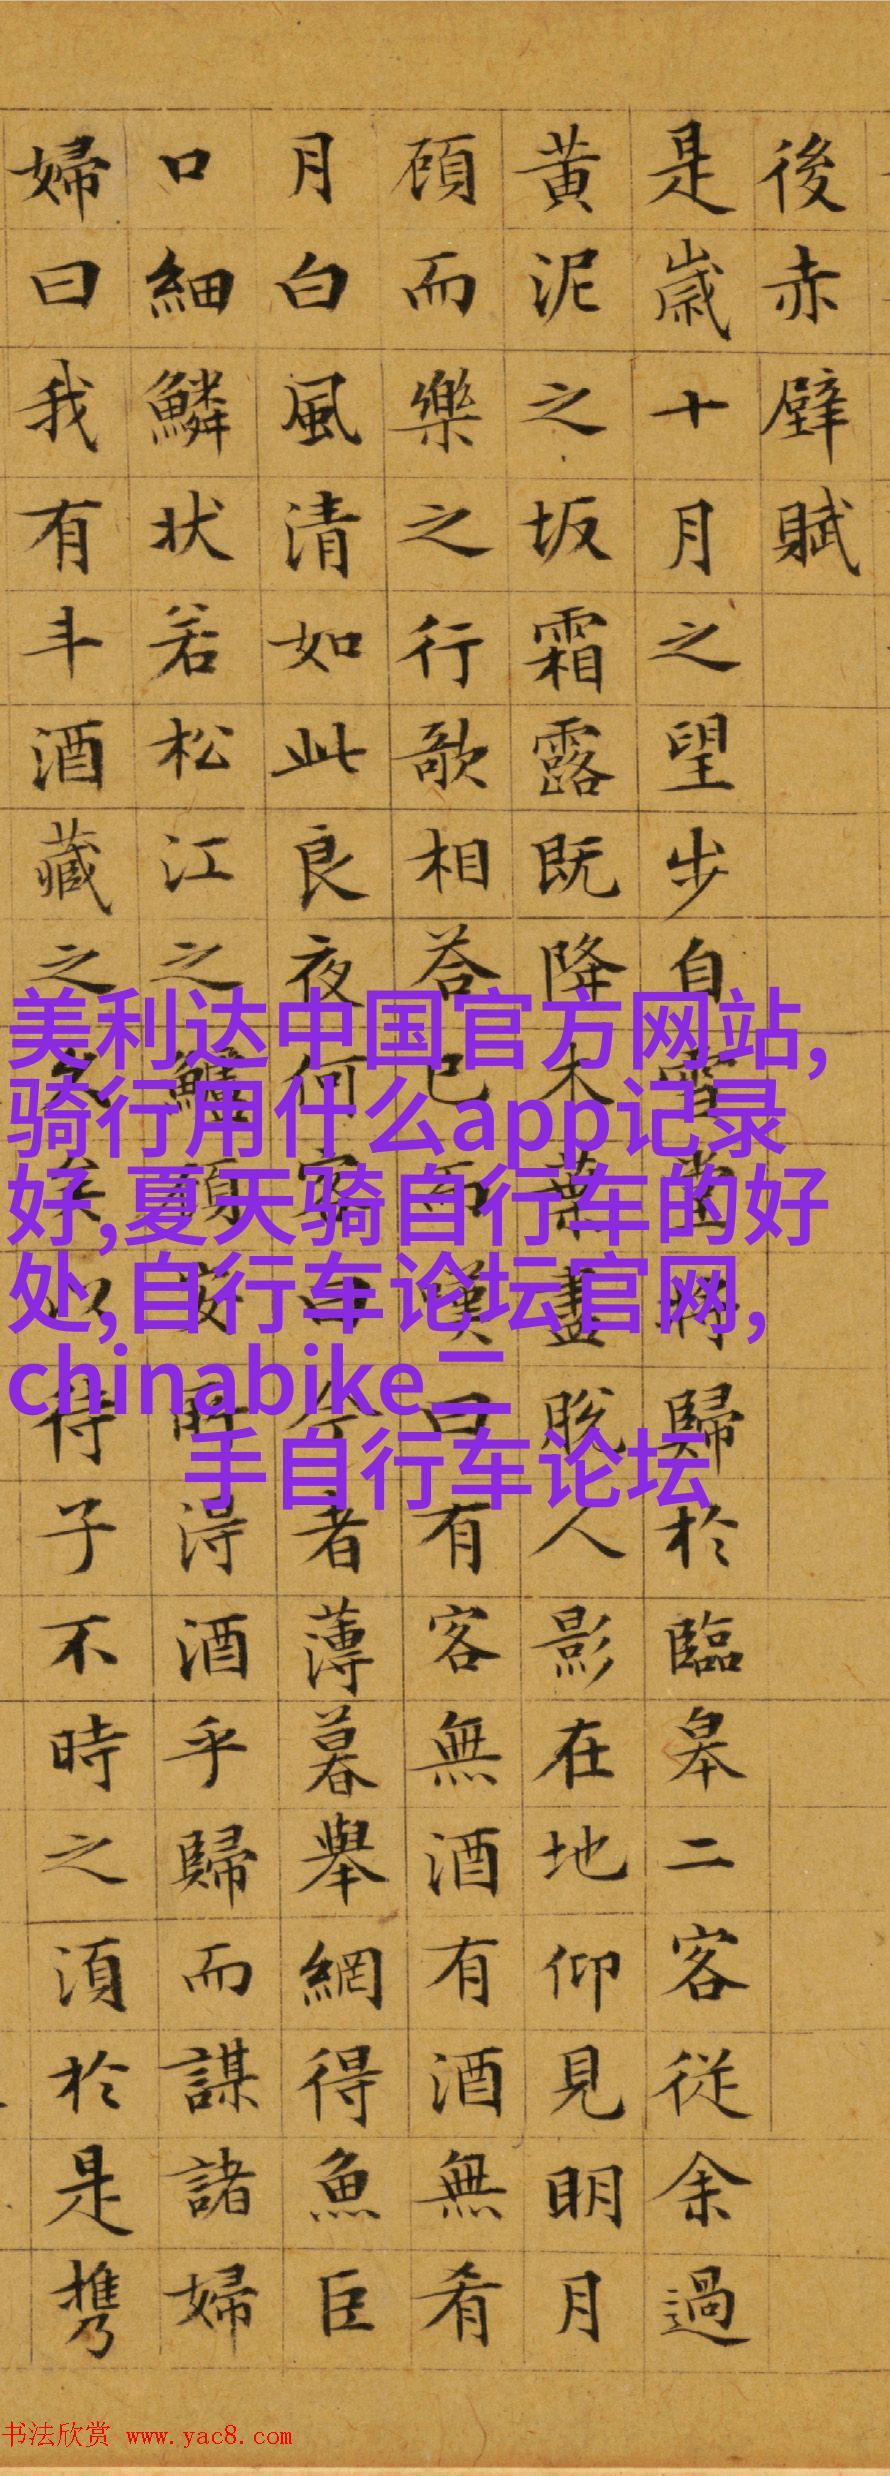 後赤壁賦
是歳十月之望步自雪堂将歸於臨皋二客從余過
黄泥之坂霜露既降木葉盡脫人影在地仰見明月
頋而樂之行歌相荅已而嘆曰有客無酒有酒無肴
月白風清如此良夜何客曰今者薄暮舉網得魚臣
口細鱗状若松江之鱸頋安所淂酒乎歸而謀諸婦
婦曰我有斗酒藏之久矣以待子不時之湏於是携
美利达中国官方网站,
骑行用什么app记录
好,夏天骑自行车的好
处,自行车论坛官网,
chinabike二
手自行车论坛
书法欣赏 www.yac8.com